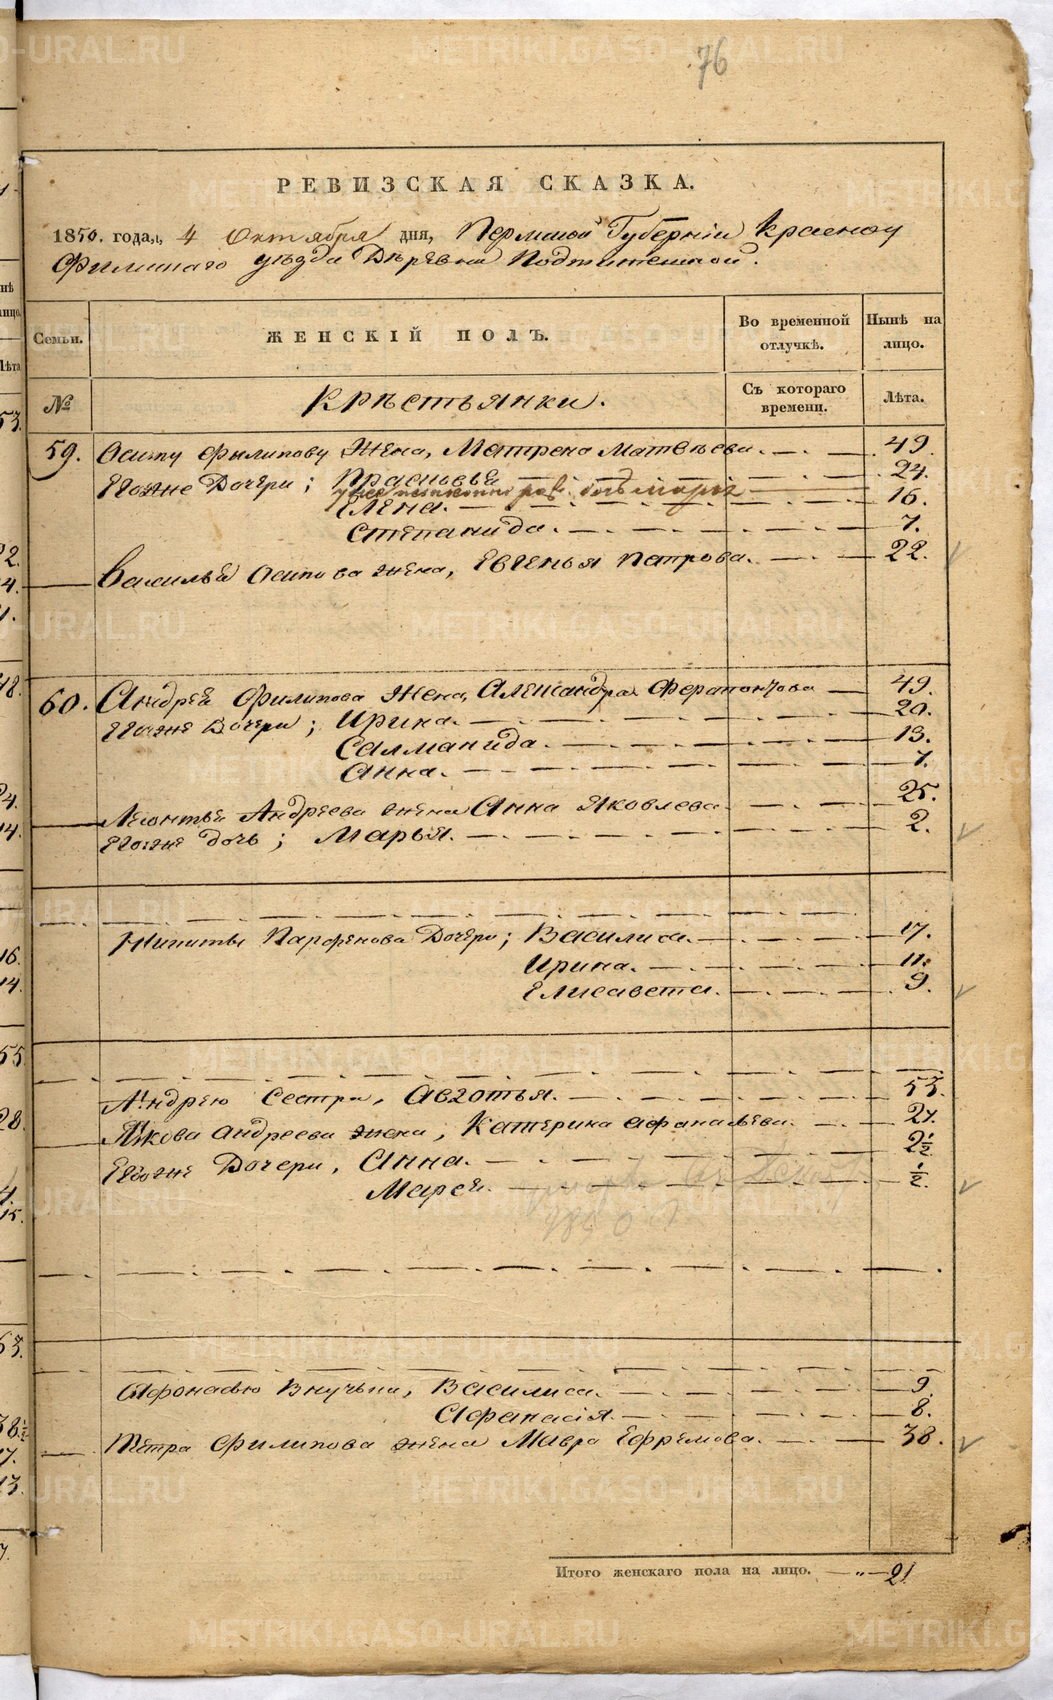 76
РЕВИЗСКАЯ СКАЗКА.
1850. года, 4 Октября дня, Пермской Губерніи Красноу
Фимскаго уѣзда Деревни
Семьи. ЖЕНСКІЙ ПОЛЪ. Во временной отлучкѣ. Нынѣ на лицо.
№ Крестьянки. Съ котораго времени. Лѣта.
59. Осипу Филипову Жена, Матрена Матвѣева. 49.
Евоже Дочери; Прасковья 24.
Елена. 16.
Степанида. 7.
Василья Осипова жена, Евгенья Патрова. 22.
60. Андрея Филипова Жена, Александра Ферапонтова 49.
Евоже Дочери; Ирина. 20.
Салманида. 13.
Анна. 7.
Леонтья Андреева жена Анна Яковлева. 25.
Евоже дочь; Марья. 2.
Никиты Парфенова Дочери; Василиса. 17.
Ирина. 11.
Елисавета. 9.
Андрею Сестра, Авдотья. 53.
Якова Андреева жена, Катерина Афанасьева. 27.
Евоже Дочери, Анна. 2½
Марья. ½.
Афонасью Внучьки, Василиса. 9.
Афанасія. 8.
Петра Филипова жена Мавра Ефремова. 38.
Итого женскаго пола на лицо. 21
METRIKI.GASO-URAL.RU